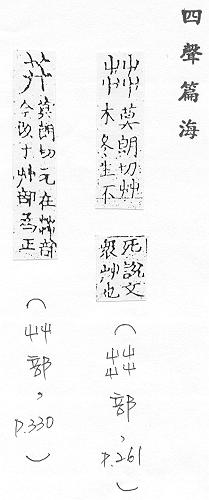 四聲篇海
茻 莫朗切艸木冬生不死說文衆艸也
（茻部，p.261）
莫朗切元在茻部今改于艸部爲正
（艸部，p.330）